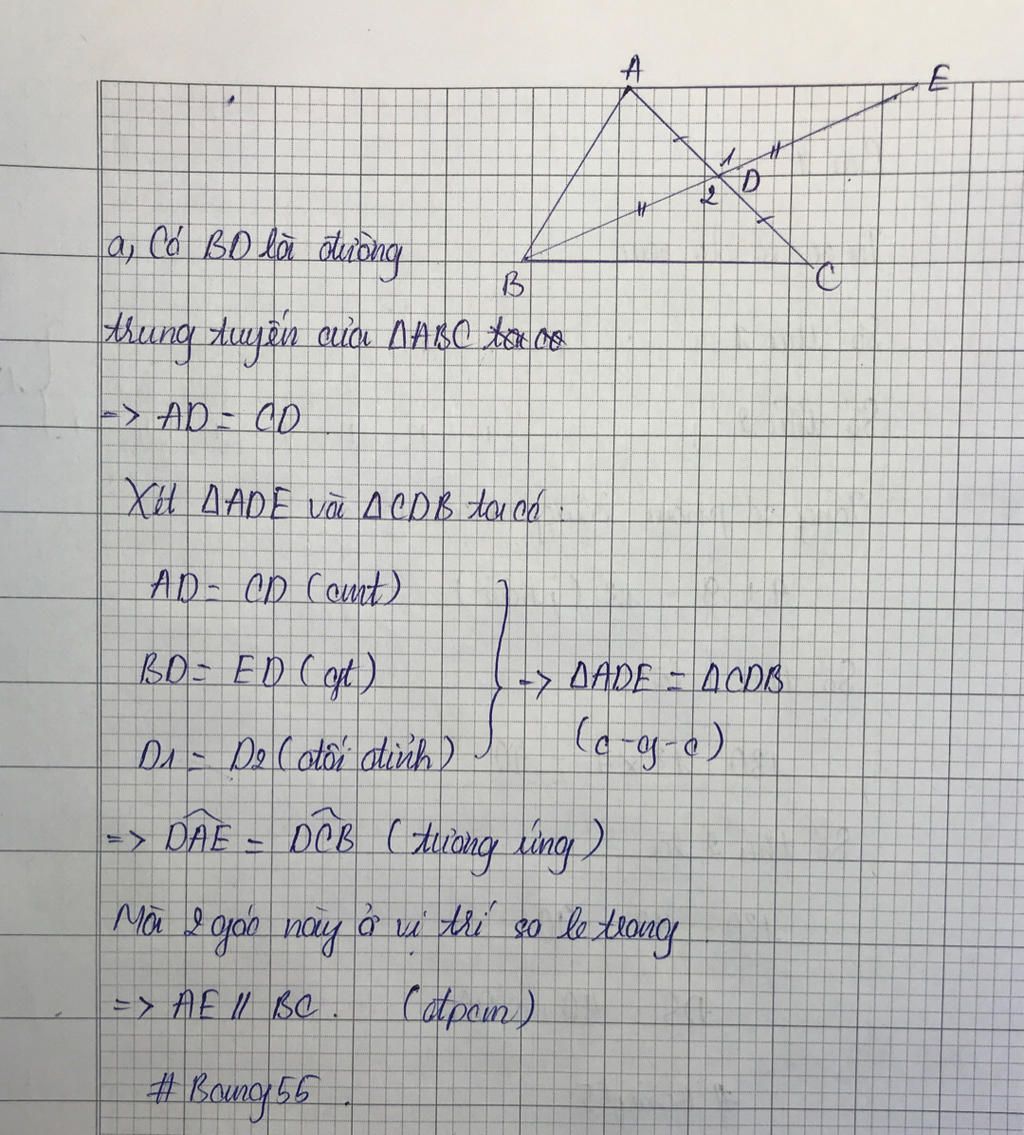 A
E
1
D
2
B
C
a, Có BD là đường
trung tuyến của ΔABC ta có
-> AD = CD
Xét ΔADE và ΔCDB ta có.
AD = CD (cmt)
BD = ED (gt)
D1 = D2 (đối đỉnh)
-> ΔADE = ΔCDB
(c-g-c)
=> \widehat{DAE} = \widehat{DCB} (tương ứng)
Mà 2 góc này ở vị trí so le trong
=> AE // BC. (đpcm)
# Bang55.